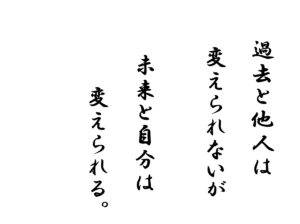 過去と他人は
変えられないが
未来と自分は
変えられる。